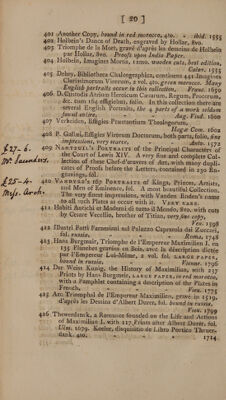 [ 20 ]
401 Another Copy, bound in red morocco, 4to. - ibid. 1555
402 Holbein's Dance of Death, engraved by Hollar, 8vo.
403 Triomphe de la Mort, gravé d'après les desseins de Holbein
par Hollar, 8vo. Proofs upon India Paper.
404 Holbein, Imagines Mortis, 12mo. wooden cuts, best edition,
Colon. 1555
405 Debry, Bibliotheca Chalcographica, continens 441 Imagines
Clarissimorum Virorum, 2 vol. 4to, green morocco. Many
English portraits occur in this collection, Francf. 1650
406 D. Custodis Atrium Heroicum Cæsarum, Regum, Procerum,
&c. tum 184 effigiebus, folio. In this collection there are
several English Portraits, the 4 parts of a work seldom
found united. Aug. Vind. 1600
407 Verheiden, Effigies Præstantium Theologorum,
Hagæ Com. 1602
408 P. Gallæi, Effigies Virorum Doctorum, both parts, folio, fine
impressions, very scarce, Antv. 1572
£27-6. 409 NANTEUIL'S PORTRAITS of the Principal Characters of
Mr. Saunders. the Court of Lewis XIV. A very fine and complete Col-
lection of these Chef-d'œuvres of Art, with many dupli-
cates of Proofs before the Letters, contained in 230 En-
gravings, fol.
£25-4. 410 VANDYKE'S 167 PORTRAITS of Kings, Princes, Artists,
Messrs. Arch. and Men of Eminence, fol. A most beautiful Collection.
The very finest impressions, with Vanden Enden's name
to all such Plates as occur with it. VERY RARE.
411 Habiti Antichi et Moderni di tutto il Mondo, 8vo. with cuts
by Cesare Vecellio, brother of Titian, very fine copy,
Ven. 1598
412 Illustri Fatti Farnesiani nel Palazzo Caprarola dai Zuccari,
fol. russia. - - - Roma, 1748
413 Hans Burgmair, Triomphe de l'Empereur Maximilien I. en
135 Planches gravées en Bois, avec la description dictée
par l'Empereur Lui-Même, 2 vol. fol. LARGE PAPER,
bound in russia. - - Vienne. 1796
414 Der Weiss Kunig, the History of Maximilian, with 237
Prints by Hans Burgmair, LARGE PAPER, in red morocco,
with a Pamphlet containing a description of the Plates in
French. - - - Vien. 1775
415 Arc Triomphal de l'Empereur Maximilien, gravé in 1519,
d'après les Dessins d'Albert Durer, fol. bound in russia.
Vien. 1799
416 Thewerdanck, a Romance founded on the Life and Actions
of Maximilian I. with 117 Prints after Albert Durer, fol.
Ulm. 1679. Koeler, disquisitio de Libro Poetico Theuer-
dank, 4to. - - - 1714